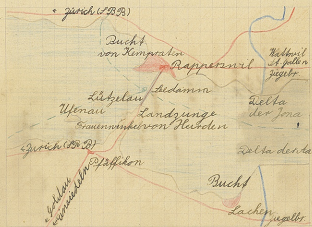 Zürich (SBB)
Bucht
von Kempraten
Rapperswil
Wattwil
St. Gallen
Zugelbr.
Seedamm
Lützelau
Ufenau
Landzunge
Frauenwinkel von Hurden
Delta
der Jona
Zürich (SBB)
Pfäffikon
Delta der
Goldau
Einsiedeln
Bucht
Lachen
Ziegelbr.